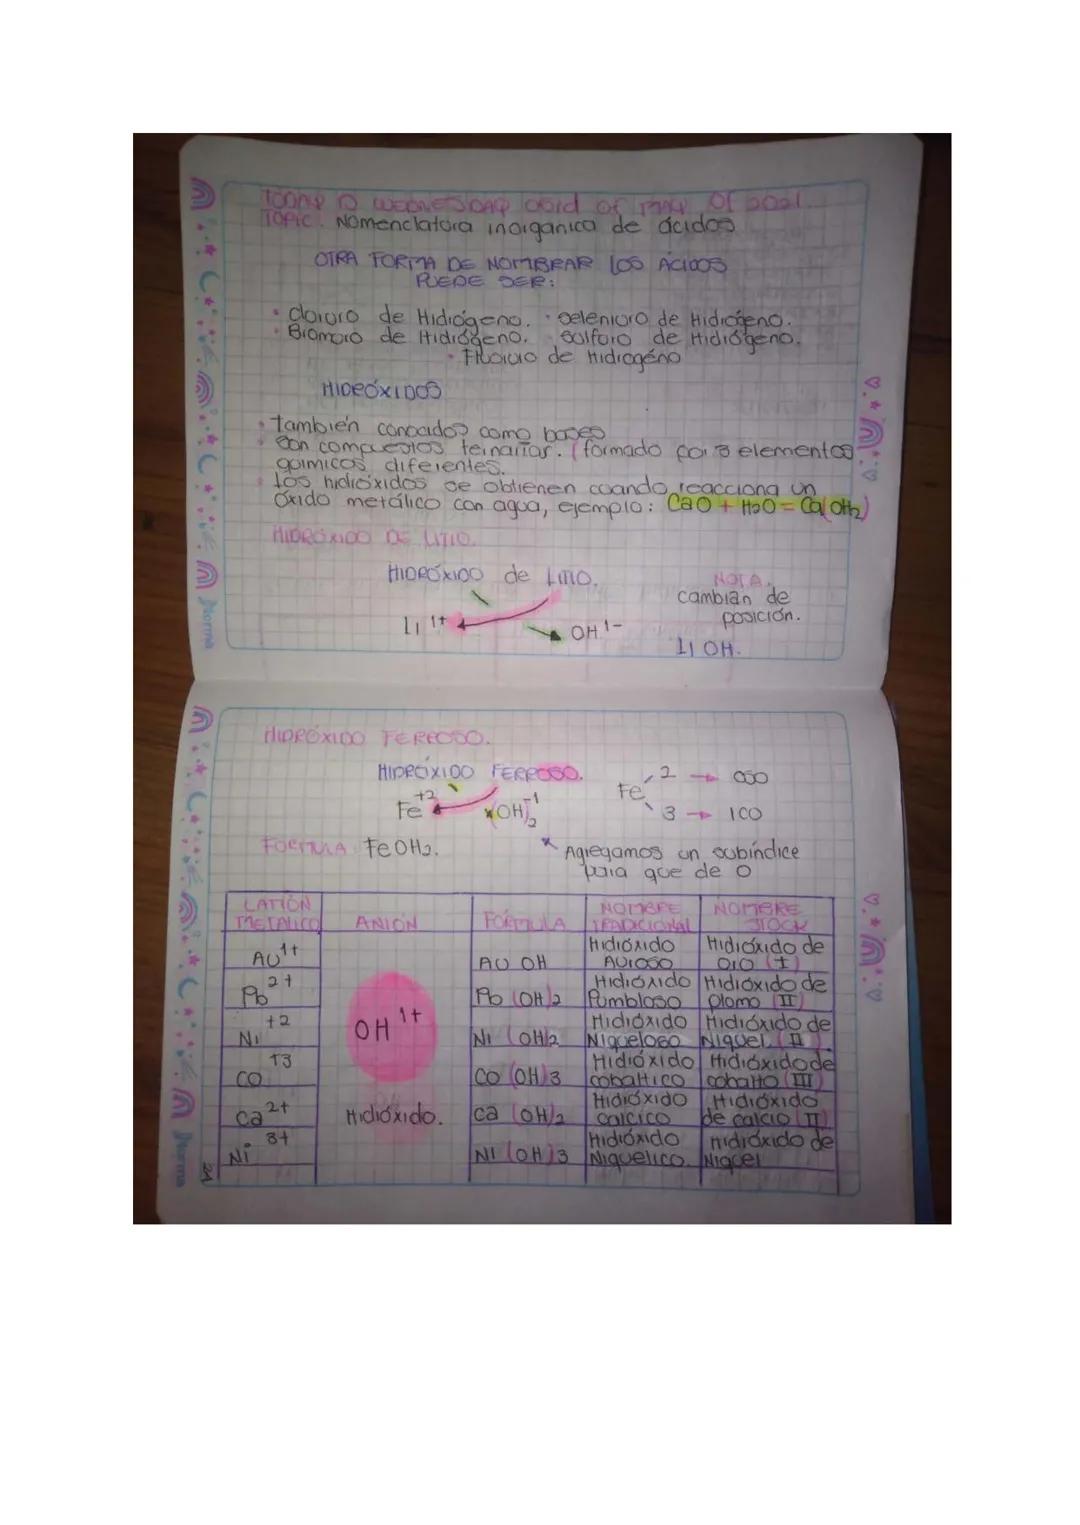 TODAY IS WEDNESDAY of MAY Of 2021.
TOPIC: Nomenclatura inorganica de ácidos
OTRA FORMA DE NOMBRAR LOS ÁCIDOS
PUEDE SER:
• Cloruro de Hidrógeno. • Selenioro de Hidrógeno.
• Bromoro de Hidrógeno. • Solforo de Hidrógeno.
• Fluoruro de Hidrogéno
HIDRÓXIDOS
• también conocidos como bases
• Son compuestos ternarios. (formado por 3 elementos
químicos diferentes.
• Los hidróxidos se obtienen cuando reacciona un
óxido metálico con agua, ejemplo: CaO + H2O = Ca(OH2)
HIDRÓXIDO DE LITIO.
HIDRÓXIDO de LITIO.
NOTA.
cambian de
posición.
Li 1+
OH 1-
Li OH.
Norma
HIDRÓXIDO FERROSO.
HIDRÓXIDO FERROSO.
Fe +2
(OH)2 -1
Fe
2 → OSO
3 → ICO
FORMULA FeOH2.
* Agregamos un subíndice
para que de 0
CATIÓN
METALICO
ANIÓN
FÓRMULA
NOMBRE
TRADICIONAL
NOMBRE
STOCK
Au 1+
Au OH
Hidróxido
Auroso
Hidróxido de
Oro (I)
Pb 2+
Pb (OH)2
Hidróxido
Pumbloso
Hidróxido de
plomo (II)
Ni +2
OH 1+
Ni (OH)2
Hidróxido
Niqueloso
Hidróxido de
Niquel (II).
CO +3
Co (OH)3
Hidróxido
cobaltico
Hidróxido de
cobalto (III)
Ca 2+
Hidróxido.
ca (OH)2
Hidróxido
calcico
Hidróxido
de calcio (II)
Ni 3+
Ni (OH)3
Hidróxido
Niquelico.
Hidróxido de
Niquel
Norma